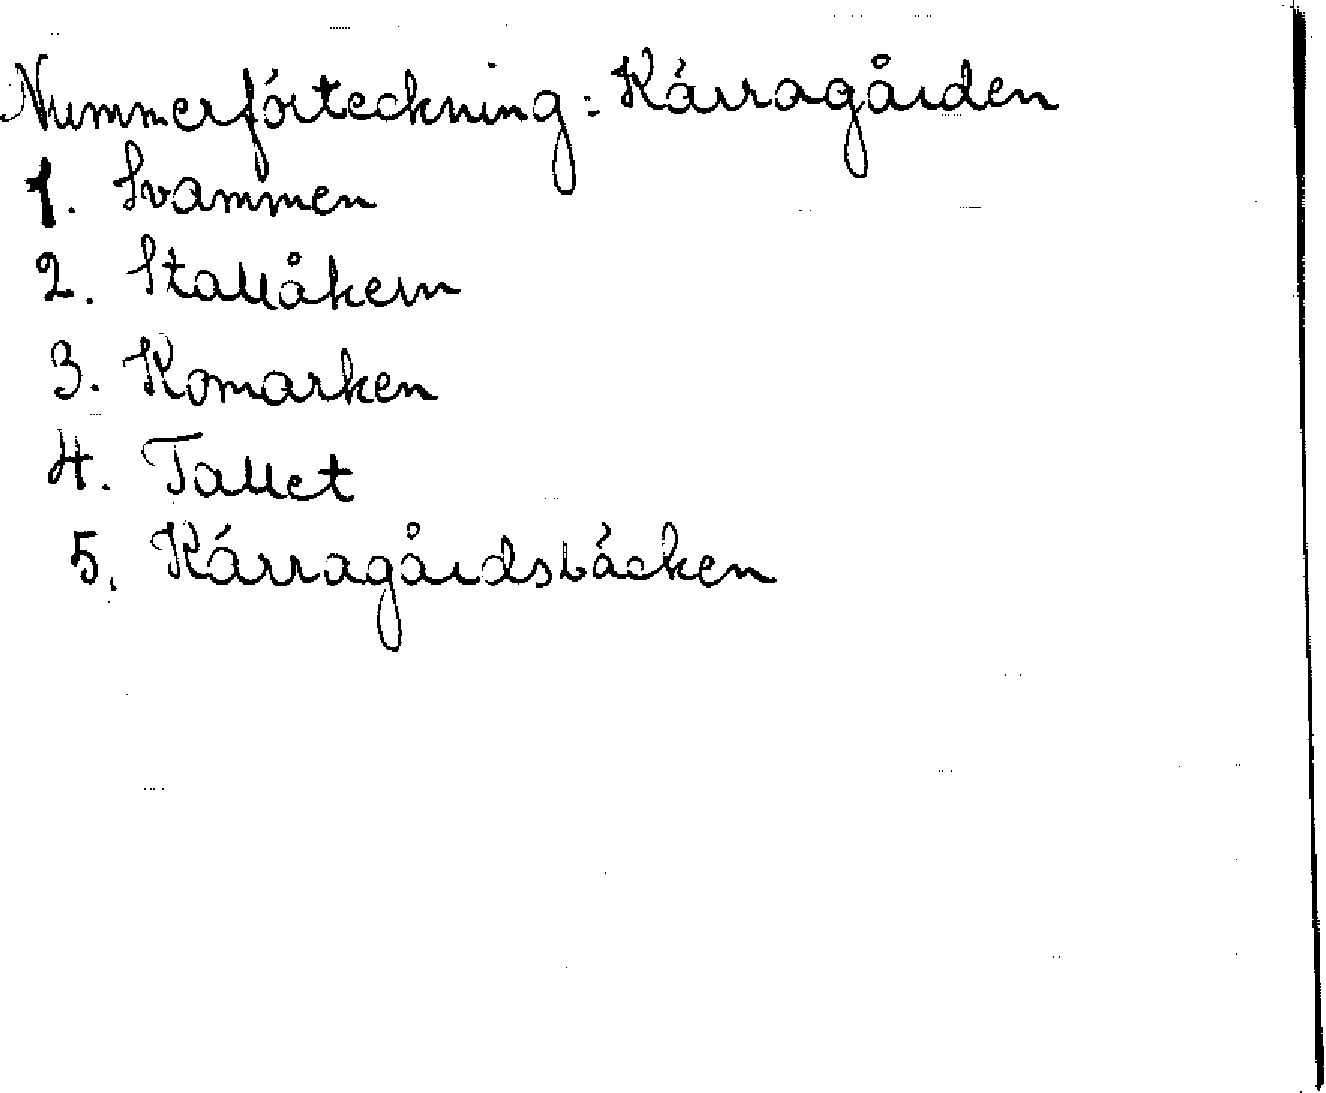 Nummerförteckning: Kärragården
1. Svammen
2. Stallåkern
3. Komarken
4. Tallet
5. Kärragårdsbäcken